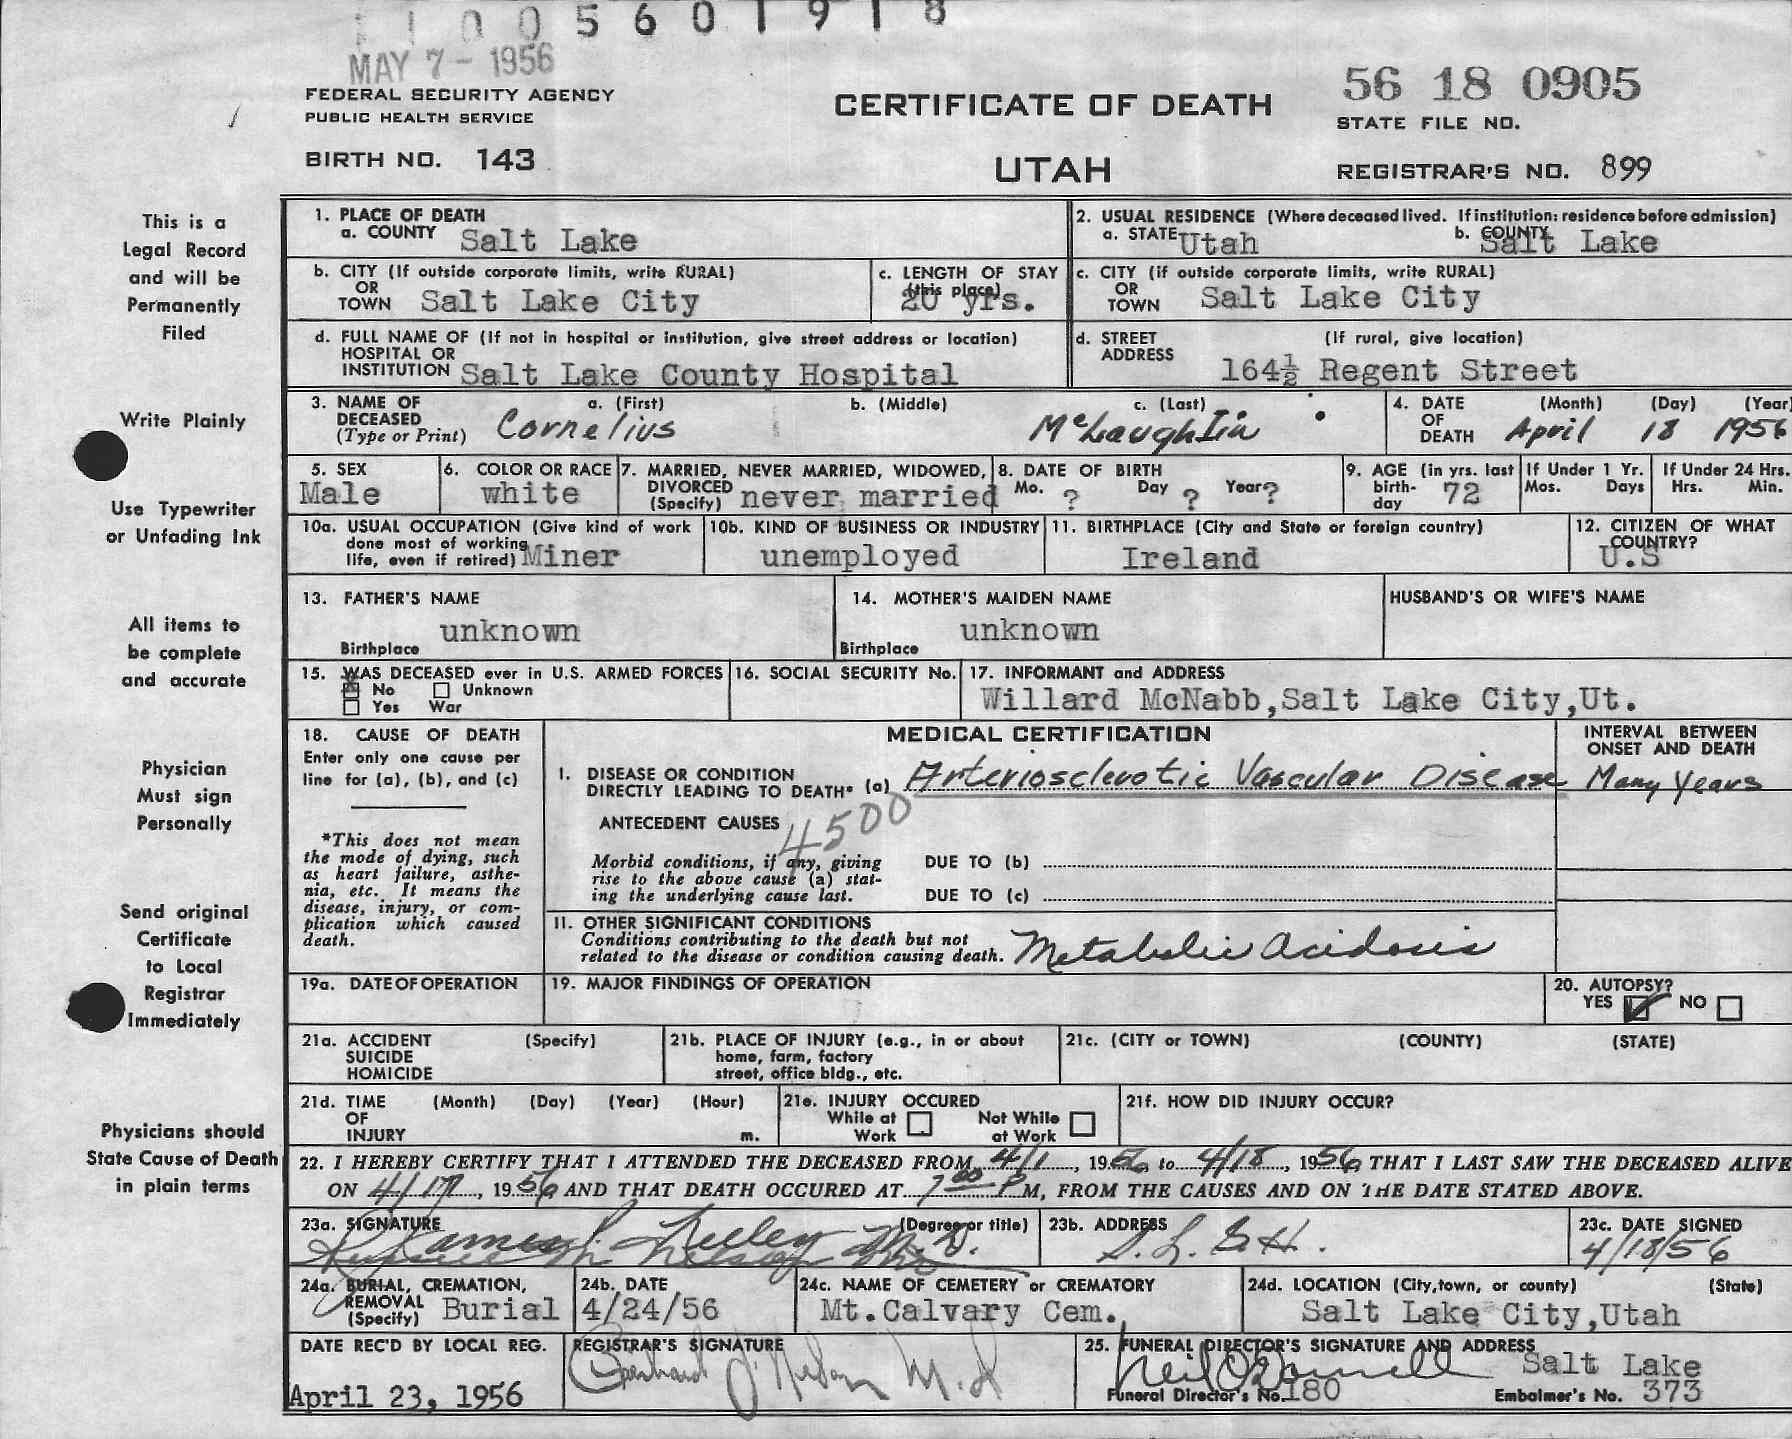 1 1 0 0 5 6 0 1 9 1 8
MAY 7 - 1956
FEDERAL SECURITY AGENCY
PUBLIC HEALTH SERVICE
BIRTH NO. 143
CERTIFICATE OF DEATH
UTAH
56 18 0905
STATE FILE NO.
REGISTRAR'S NO. 899
This is a
Legal Record
and will be
Permanently
Filed
Write Plainly
Use Typewriter
or Unfading Ink
All items to
be complete
and accurate
Physician
Must sign
Personally
Send original
Certificate
to Local
Registrar
Immediately
Physicians should
State Cause of Death
in plain terms
1. PLACE OF DEATH
a. COUNTY Salt Lake
2. USUAL RESIDENCE (Where deceased lived. If institution: residence before admission)
a. STATE Utah b. COUNTY Salt Lake
b. CITY (If outside corporate limits, write RURAL)
OR
TOWN Salt Lake City
c. LENGTH OF STAY
(this place)
20 yrs.
c. CITY (if outside corporate limits, write RURAL)
OR
TOWN Salt Lake City
d. FULL NAME OF (If not in hospital or institution, give street address or location)
HOSPITAL OR
INSTITUTION Salt Lake County Hospital
d. STREET (If rural, give location)
ADDRESS
164½ Regent Street
3. NAME OF a. (First) b. (Middle) c. (Last)
DECEASED
(Type or Print) Cornelius McLaughlin
4. DATE (Month) (Day) (Year)
OF
DEATH April 18 1956
5. SEX
Male
6. COLOR OR RACE
white
7. MARRIED, NEVER MARRIED, WIDOWED,
DIVORCED
(Specify) never married
8. DATE OF BIRTH
Mo. ? Day ? Year ?
9. AGE (in yrs. last
birth-
day 72
If Under 1 Yr.
Mos. Days
If Under 24 Hrs.
Hrs. Min.
10a. USUAL OCCUPATION (Give kind of work
done most of working
life, even if retired) Miner
10b. KIND OF BUSINESS OR INDUSTRY
unemployed
11. BIRTHPLACE (City and State or foreign country)
Ireland
12. CITIZEN OF WHAT
COUNTRY?
U.S
13. FATHER'S NAME
unknown
Birthplace
14. MOTHER'S MAIDEN NAME
unknown
Birthplace
HUSBAND'S OR WIFE'S NAME
15. WAS DECEASED ever in U.S. ARMED FORCES
No Unknown
Yes War
16. SOCIAL SECURITY No.
17. INFORMANT and ADDRESS
Willard McNabb,Salt Lake City,Ut.
18. CAUSE OF DEATH
Enter only one cause per
line for (a), (b), and (c)
*This does not mean
the mode of dying, such
as heart failure, asthe-
nia, etc. It means the
disease, injury, or com-
plication which caused
death.
MEDICAL CERTIFICATION
INTERVAL BETWEEN
ONSET AND DEATH
I. DISEASE OR CONDITION
DIRECTLY LEADING TO DEATH* (a) Arteriosclerotic Vascular Disease Many Years
4500
ANTECEDENT CAUSES
Morbid conditions, if any, giving
rise to the above cause (a) stat-
ing the underlying cause last.
DUE TO (b)
DUE TO (c)
II. OTHER SIGNIFICANT CONDITIONS
Conditions contributing to the death but not
related to the disease or condition causing death. Metabolic Acidosis
19a. DATE OF OPERATION
19. MAJOR FINDINGS OF OPERATION
20. AUTOPSY?
YES NO
21a. ACCIDENT (Specify)
SUICIDE
HOMICIDE
21b. PLACE OF INJURY (e.g., in or about
home, farm, factory
street, office bldg., etc.
21c. (CITY or TOWN) (COUNTY) (STATE)
21d. TIME (Month) (Day) (Year) (Hour)
OF
INJURY m.
21e. INJURY OCCURED
While at Work
Not While at Work
21f. HOW DID INJURY OCCUR?
22. I HEREBY CERTIFY THAT I ATTENDED THE DECEASED FROM 4/1, 1956 to 4/18, 1956 THAT I LAST SAW THE DECEASED ALIVE
ON 4/17, 1956 AND THAT DEATH OCCURED AT 7 00 P M, FROM THE CAUSES AND ON THE DATE STATED ABOVE.
23a. SIGNATURE (Degree or title)
James Kelley M.D.
23b. ADDRESS
S.L.G.H.
23c. DATE SIGNED
4/18/56
24a. BURIAL, CREMATION,
REMOVAL
(Specify) Burial
24b. DATE
4/24/56
24c. NAME OF CEMETERY or CREMATORY
Mt.Calvary Cem.
24d. LOCATION (City,town, or county) (State)
Salt Lake City,Utah
DATE REC'D BY LOCAL REG.
April 23, 1956
REGISTRAR'S SIGNATURE
M.D
25. FUNERAL DIRECTOR'S SIGNATURE AND ADDRESS
Neil O'Donnell Salt Lake
Funeral Director's No. 180 Embalmer's No. 373